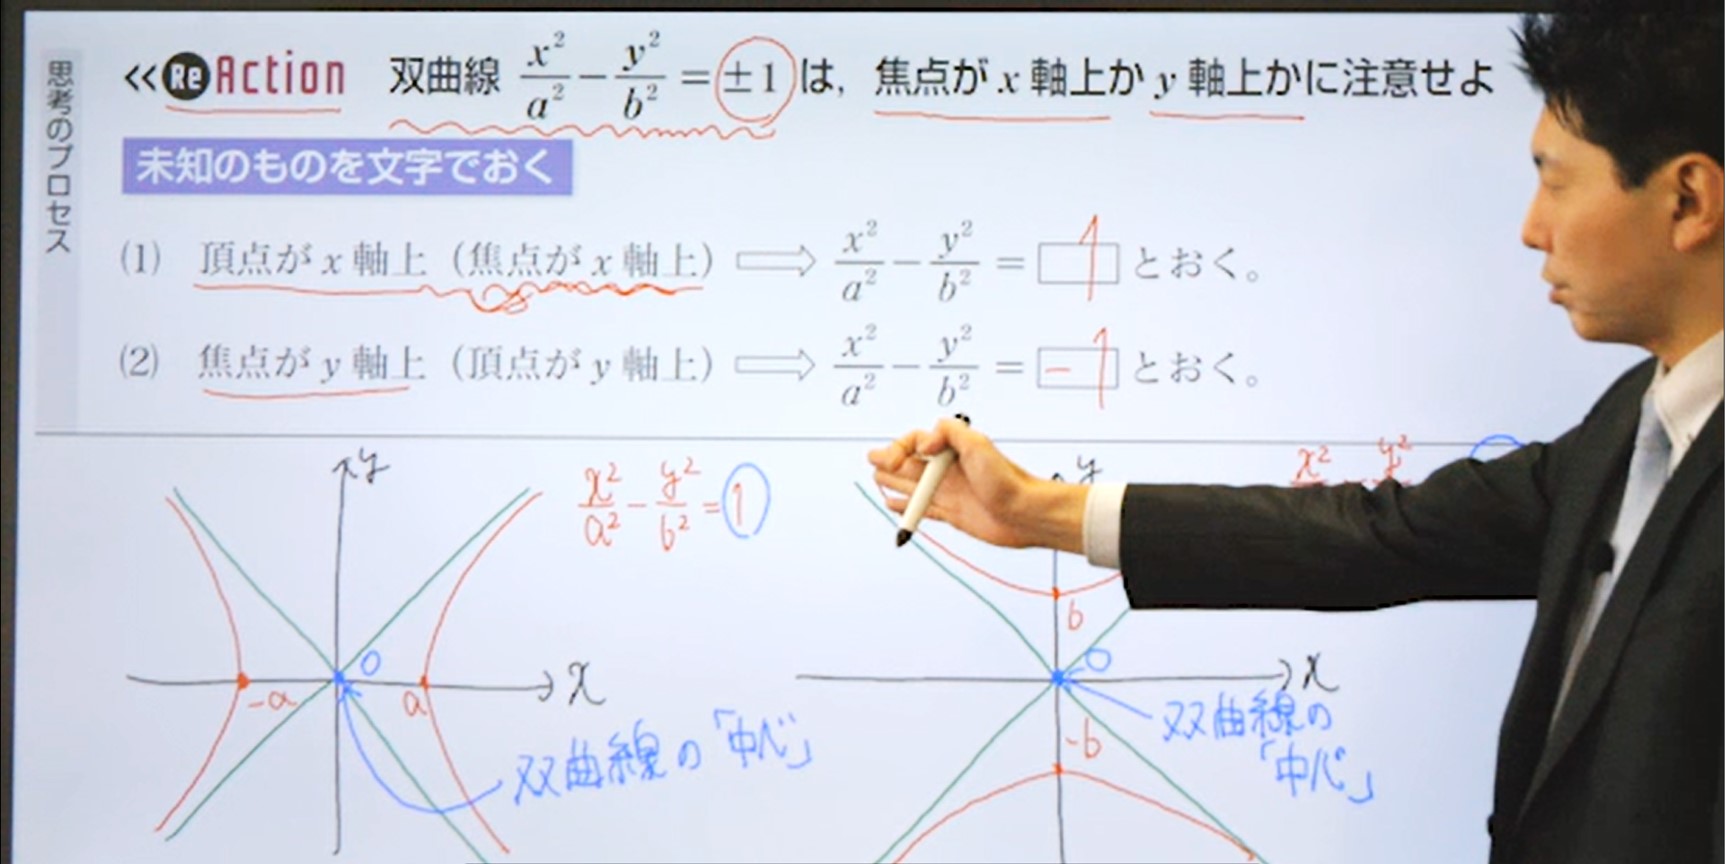 思考のプロセス
≪ReAction 双曲線 x²/a² − y²/b² = ±1 は，焦点が x 軸上か y 軸上かに注意せよ
未知のものを文字でおく
(1) 頂点が x 軸上（焦点が x 軸上） ⟹ x²/a² − y²/b² = 1 とおく。
(2) 焦点が y 軸上（頂点が y 軸上） ⟹ x²/a² − y²/b² = -1 とおく。
y
x²/a² − y²/b² = 1
O
-a
a
x
双曲線の「中心」
y
x²
y²
b
O
x
双曲線の
「中心」
-b